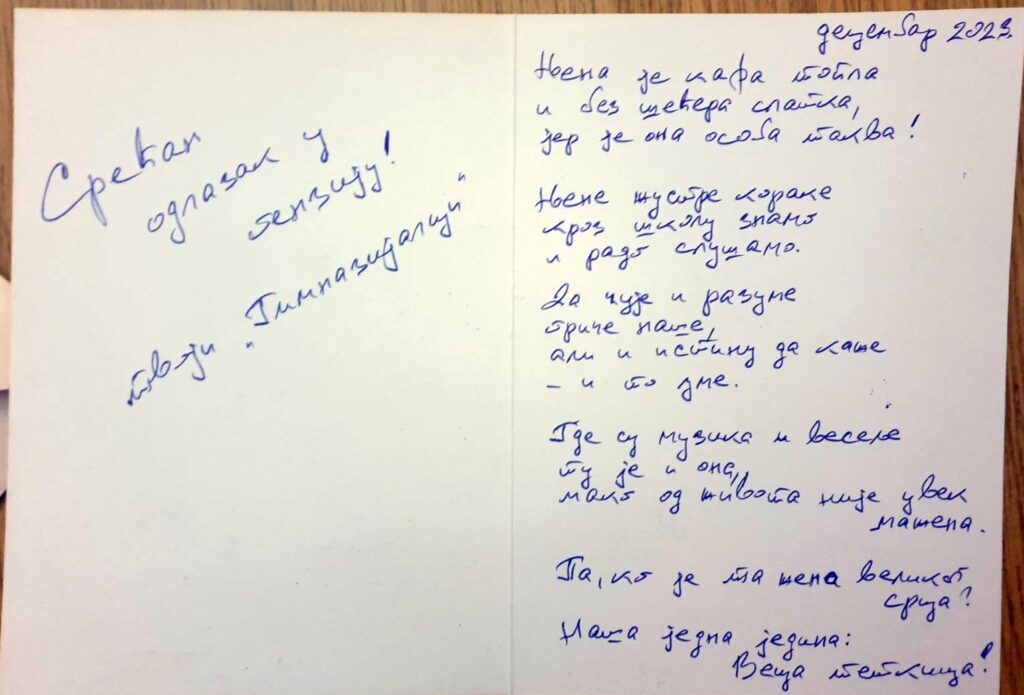 Срећан
одлазак у
пензију!
твоји „Гимназијалци“
децембар 2023.
Њена је кафа топла
и без шећера слатка,
јер је она особа таква!
Њене жустре кораке
кроз школу знамо
и радо слушамо.
Да чује и разуме
приче наше,
али и истину да каже
– и то уме.
Где су музика и весеље
ту је и она,
мако од живота није увек
мажена.
Па, ко је та жена великог
срца?
Наша једна једина:
Веца теткица!